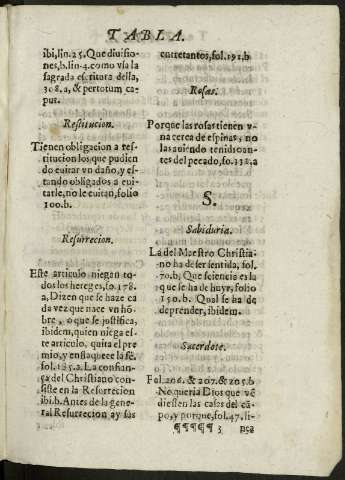 TABLA.
ibi, lin.25. Que diuisio-
nes, b.lin.4. como vsa la
sagrada escritura dessa,
308.a, & per totum ca-
put.
Restitucion.
Tienen obligacion a res-
titucion los, que pudien
do euitar vn daño, y es-
tando obligados a eui-
tarle, no le euitan, folio
100.b.
Resurrecion.
Este articulo niegan to-
dos los hereges, fo.178.
a, Dizen que se haze ca
da vez que nace vn hõ-
bre, o que se justifica,
ibidem, quien niega es-
te articulo, quita el pre
mio, y enflaquece la fè.
fol.185.a. La confian-
ça del Christiano con-
siste en la Resurrecion
ibi.b. Antes de la gene-
ral Resurrecion ay sus
entretantos, fol.191.b
Rosas.
Porque las rosas tienen v-
na cerca de espinas, no
las auiendo tenido an-
tes del pecado, fo.132.a
S.
Sabiduria.
La del Maestro Christia-
no ha de ser sentida, fol.
70.b, Que sciencia es la
que se ha de huyr, folio
150.b. Qual se ha de
deprender, ibidem.
Sacerdote.
Fol.206. & 207. & 205.b
No queria Dios que vẽ
diessen las casas del cã-
po, y porque, fol.47. li-
¶¶¶¶¶ 3 nea